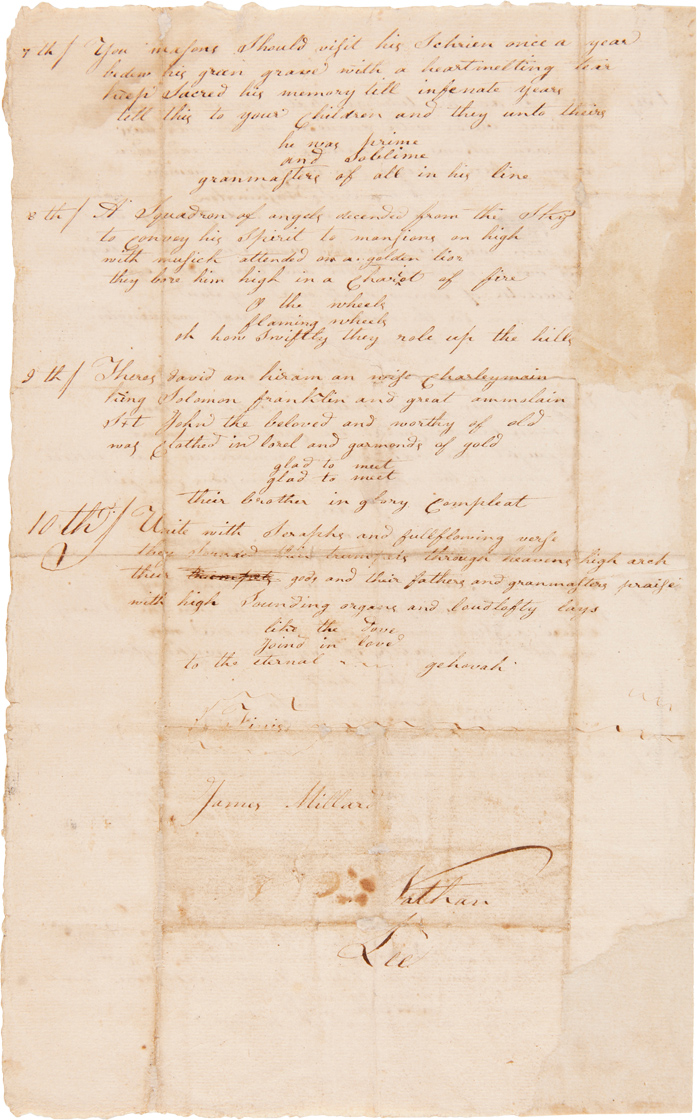 7th/ You masons should visit his Schrien once a year
bedew his green grave with a heartmelting tear
keep Sacred his memory till infenate years
tell this to your Children and they unto theirs
he was prime
and Soblime
granmasters of all in his line
8th/ A Squadron of angels decended from the Sky
to convey his Spirit to mansions on high
with musick attended on a golden lior
they bore him high in a Chariot of fire
O the wheels
flaming wheels
oh how Swiftly they role up the hills
9th/ Theres david an hiram an wise Charleymain
king Solomon franklin and great ammolain
St John the beloved and worthy of old
was Clothed in lorel and garmends of gold
glad to meet
glad to meet
their brother in glory Compleat
10th/ Unite with Seraphs and fullflowing verse
they Sound their trumpets through heavens high arch
their trumpets gods and their fathers and granmasters praise
with high Sounding organs and loudlofty lays
like the Dove
Joind in love
to the eternal gehovah
Finis
James Millard
Nathan
Lee